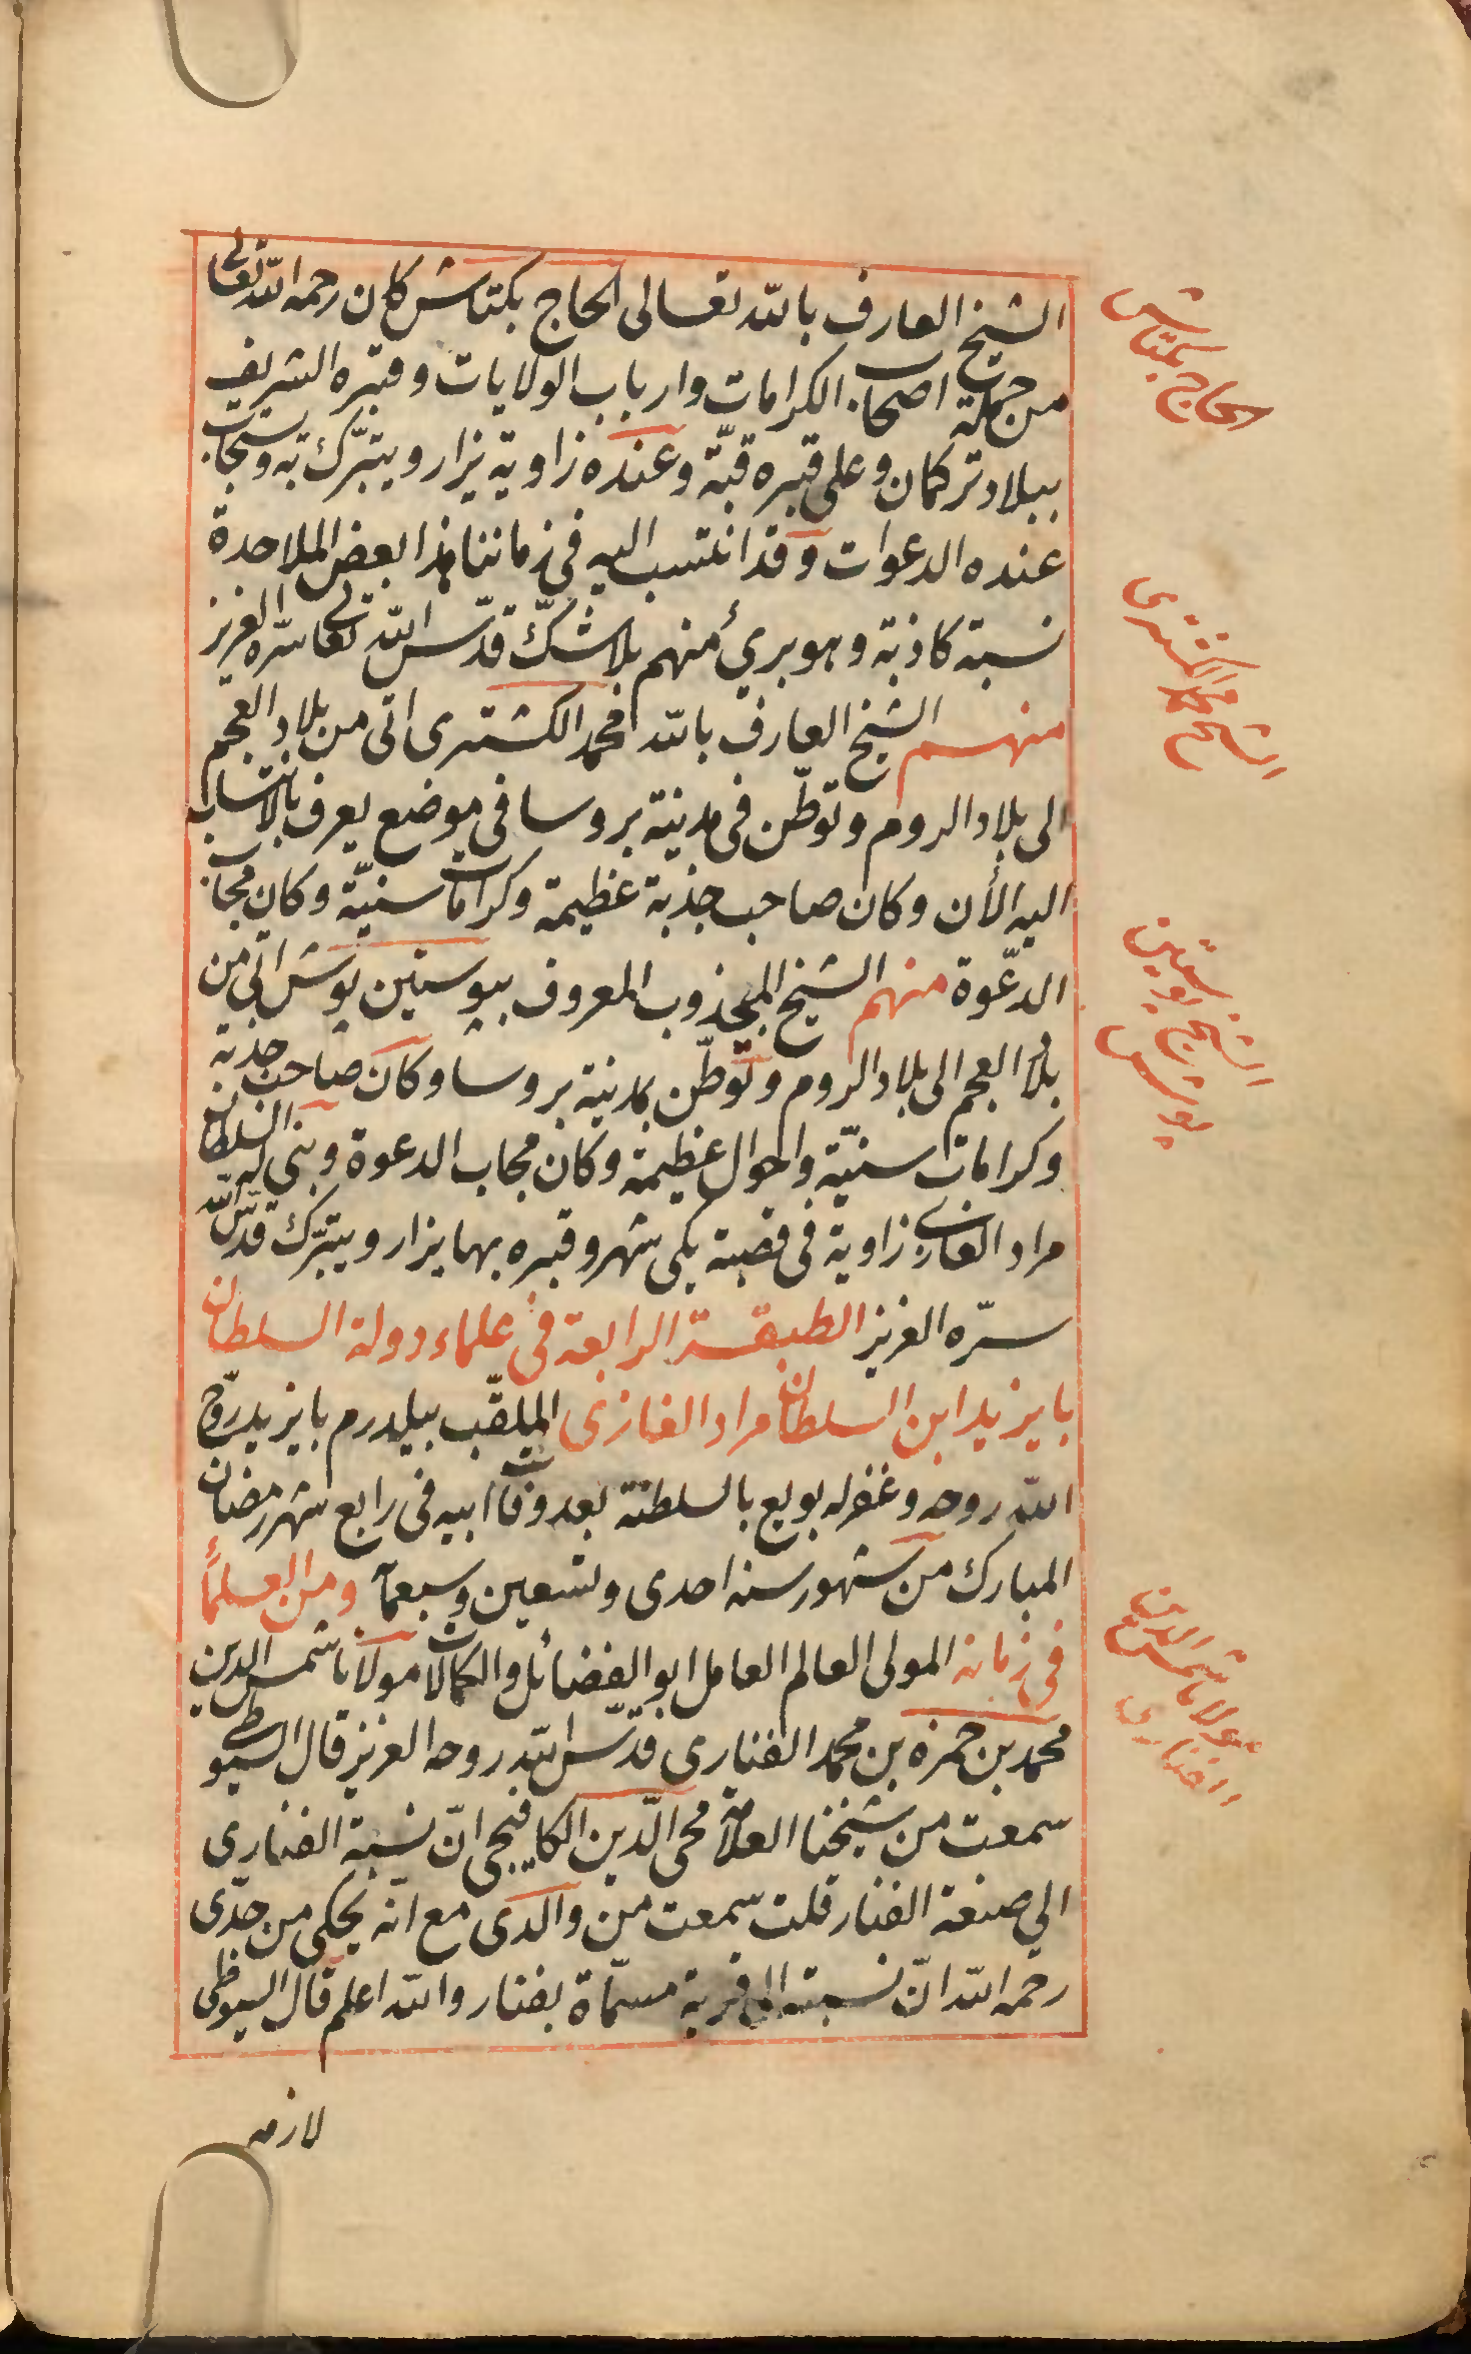 الشيخ العارف بالله تعالى الحاج بكتاش كان رحمه الله تعالى
من جملة اصحاب الكرامات وارباب الولايات وقبره الشريف
ببلاد تركمان وعلى قبره قبّة وعنده زاوية يزار ويتبرّك به ويستجاب
عنده الدعوات وقد انتسب اليه فى زماننا هذا بعض الملاحدة
نسبة كاذبة وهو برئ منهم بلا شكّ قدّس الله تعالى سرّه العزيز
منهم الشيخ العارف بالله محمد الكشترى اتى من بلاد العجم
الى بلاد الروم وتوطّن فى مدينة بروسا فى موضع يعرف بالانتساب
اليه الأن وكان صاحب جذبة عظيمة وكرامات سنيّة وكان مجاب
الدّعوة منهم الشيخ المجذوب المعروف ببوستين پوش اتى من
بلاد العجم الى بلاد الروم وتوطّن بمدينة بروسا وكان صاحب جذبة
وكرامات سنيّة واحوال عظيمة وكان مجاب الدعوة وبنى له السلطان
مراد الغازى زاوية فى قصبة يكى شهر وقبره بها يزار ويتبرّك قدّس الله
سرّه العزيز الطبقة الرابعة فى علماء دولة السلطان
بايزيد ابن السلطان مراد الغازى الملقّب بيلدرم بايزيد روّح
الله روحه وغفر له بويع بالسلطنة بعد وفات ابيه فى رابع شهر رمضان
المبارك من شهور سنه احدى وتسعين وسبعمآ ومن العلمأ
فى زمانه المولى العالم العامل ابو الفضائل والكمالات مولانا شمس الدين
محمد بن حمزه بن محمد الفنارى قدّس الله روحه العزيز قال السيوطى
سمعت من شيخنا العلامة محى الدّين الكافيجى انّ نسبة الفنارى
الى صنعة الفنار قلت سمعت من والدى مع انّه يحكى من جدّى
رحمه الله انّ نسبته الى قرية مسمّاة بفنار والله اعلم قال السيوطى
لازمه
الحاج بكتاش
الشيخ محمد الكشترى
الشيخ پوستين
پوش
مولانا شمس الدين
الفنارى